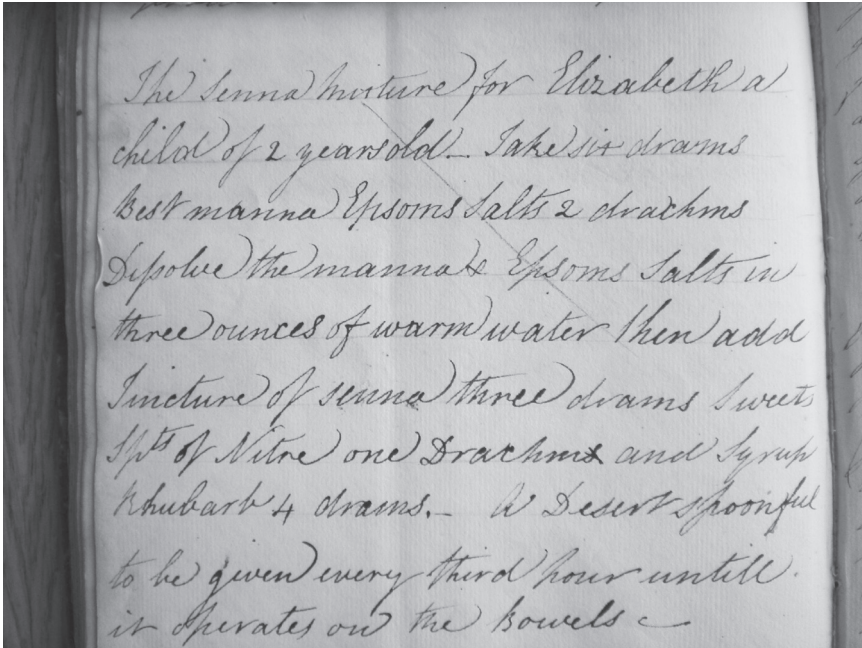 The Senna Mixture for Elizabeth a
child of 2 years old - Take six drams
Best manna Epsoms Salts 2 drachms
Dissolve the manna & Epsoms Salts in
three ounces of warm water then add
Tincture of senna three drams Sweets
Spts of Nitre one Drachms and Syrup
Rhubarb 4 drams. - A Desert spoonful
to be given every third hour untill
it operates on the Bowels -